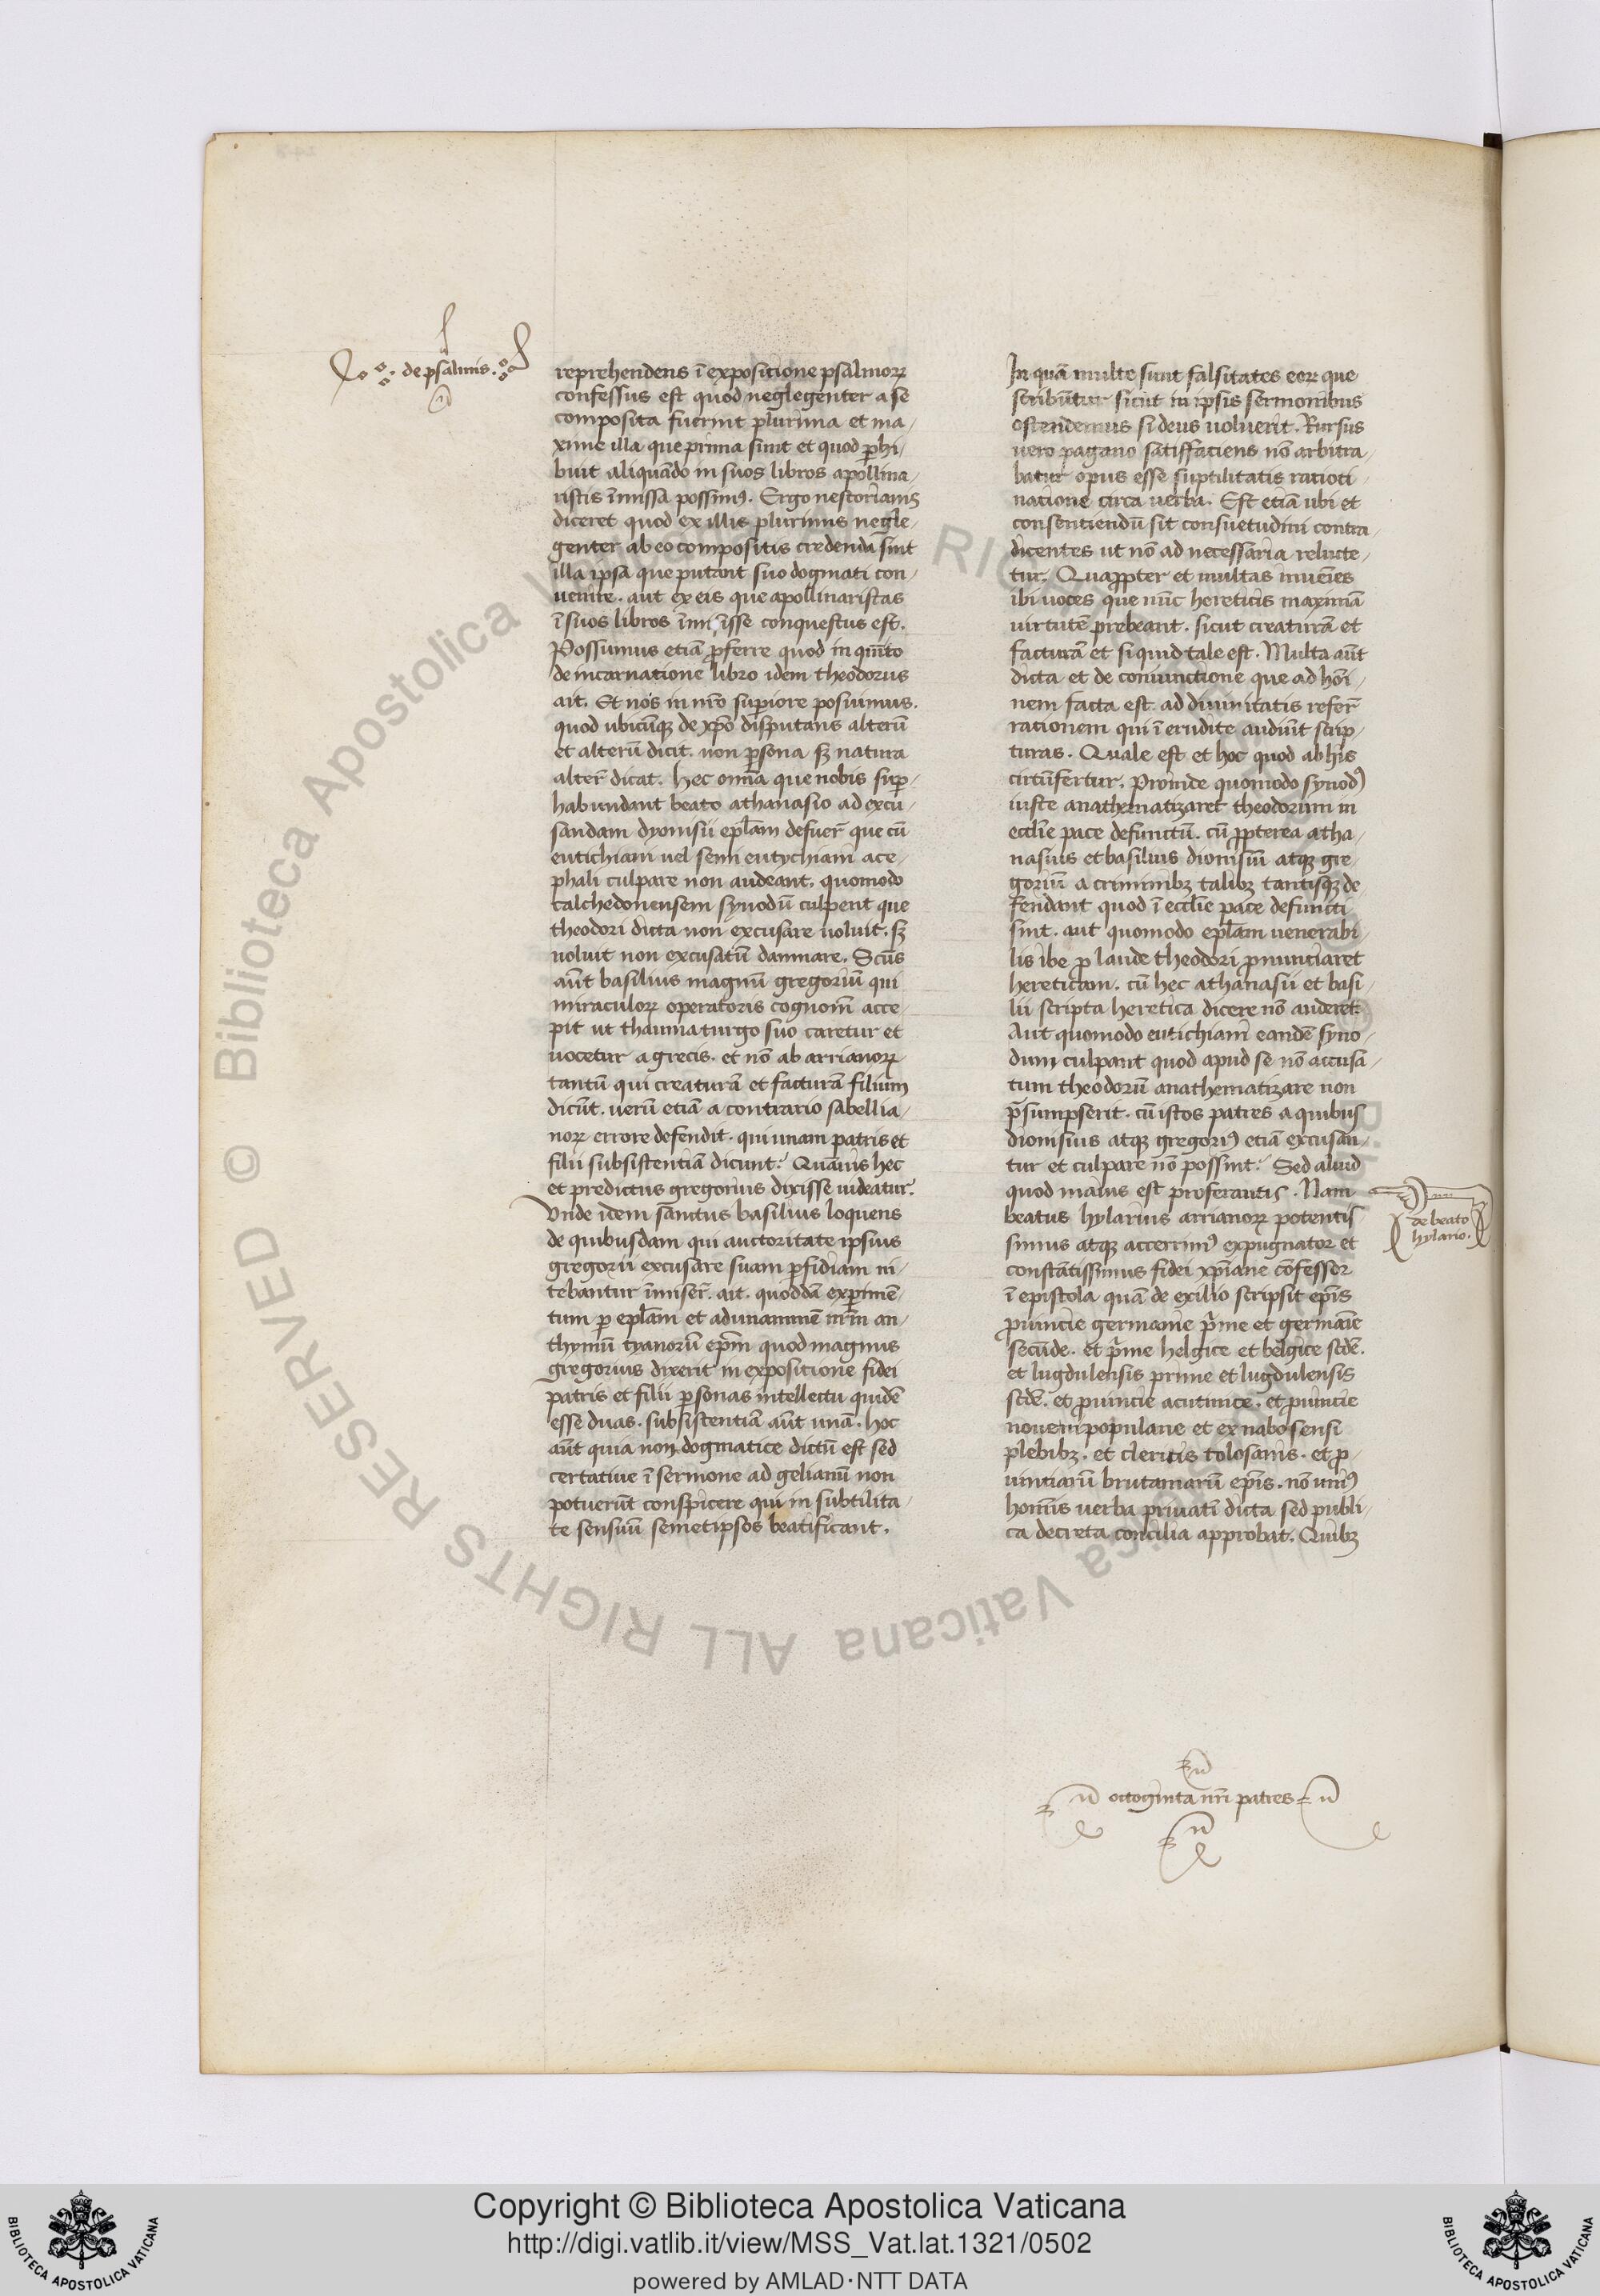 de psalmis.
reprehendens ī expositione psalmoꝝ
confessus est quod neglegenter a se
composita fuerint plurima et ma-
xime illa que prima sunt et quod ꝑhi-
buit aliquādo in suos libros apollina-
ristis īmissa possim9. Ergo nestorianis
diceret quod ex illis plurimis negle-
genter ab eo compositis credenda sint
illa ipsa que putant suo dogmati con-
uenire. aut ex eis que apollinaristas
ī suos libros īmisisse conquestus est.
Possumus etiā ꝓferre quod in quīto
de incarnatione libro idem theodorus
ait. Et nos in nr̄o superiore posuimus.
quod ubicūqꝫ de xp̄o disputans alterū
et alterū dicit. non ꝑsona sꝫ natura
alter̄ dicat. Hec om̄ia que nobis suꝑ-
habundant beato athanasio ad excu-
sandam dyonisii epl̄am defuer̄ que cū
eutichiani uel semi eutychiani ace-
phali culpare non audeant. quomodo
calchedonensem synodū culpent que
theodori dicta non excusare uoluit. sꝫ
noluit non excusatū damnare. Scūs
aūt basilius magnū gregoriū qui
miraculoꝝ operatoris cognom̄ acce-
pit ut thaumaturgo suo caretur et
uocetur a grecis. et nō ab arrianoꝝ
tantū qui creaturā et facturā filium
dicūt. uerū etiā a contrario sabellia-
noꝝ errore defendit. qui unam patris et
filii subsistentiā dicunt. Quāuis hec
et predictus gregorius dixisse uideatur.
Vnde idem sanctus basilius loquens
de quibusdam qui auctoritate ipsius
gregorii excusare suam ꝑfidiam ni-
tebantur īmiser̄. ait. quoddā experimē-
tum ꝑ epl̄am et ad unanimē nr̄m an-
thymū tyanorū ep̄m quod magnus
gregorius dixerit in expositione fidei
patris et filii ꝑsonas intellectu quidē
esse duas. subsistentiā aūt unā. hoc
aūt quia non dogmatice dictū est sed
certatiue ī sermone ad gelianū non
potuerūt conspicere qui in subtilita-
te sensuū semetipsos beatificant.
In quā multe sunt falsitates eoꝝ que
scribūtur sicut in ipsis sermonibus
ostendemus si deus uoluerit. Rursus
uero pagano satisfaciens nō arbitra-
batur opus esse suptilitatis ratioti-
natione circa uerba. Est etiā ubi et
consentiendū sit consuetudini contra-
dicentes ut nō ad necessaria relucte-
tur. Quaꝓpter et multas inuēies
ibi uoces que nūc hereticis maximā
uirtutē prebeant. sicut creaturā et
facturā et si quid tale est. Multa aūt
dicta et de coniunctione que ad hoī-
nem facta est. ad diuinitatis refer̄
rationem qui ī erudite audiūt scrip-
turas. Quale est et hoc quod ab his
circūfertur. Proinde quomodo synod9
iuste anathematizaret theodorum in
eccl̄ie pace defunctū. cū ꝓpterea atha-
nasius et basilius dionisiū atqꝫ gre-
goriū a criminibꝫ talibꝫ tantisqꝫ de-
fendant quod ī eccl̄ie pace defuncti
sint. aut quomodo epl̄am uenerabi-
lis ibe ꝓ laude theodori ꝓnunciaret
hereticam. cū hec athanasii et basi-
lii scripta heretica dicere nō auderet.
Aut quomodo eutichiani eandē syno-
dum culpant quod apud se nō accusa-
tum theodorū anathematizare non
p̄sumpserit. cū istos patres a quibus
dionisius atqꝫ gregori9 etiā excusan-
tur et culpare nō possint. Sed aliud
quod maius est proferantis. Nam
beatus hylarius arrianoꝝ potentis-
simus atqꝫ accerrim9 expugnator et
constātissimus fidei xp̄iane cōfessor
ī epistola quā de exilio scripsit ep̄is
ꝓuincie germanie p̄me et germāie
secūde. et p̄me helgice et belgice scdē.
et lugdulensis prime et lugdulensis
scdē. et ꝓuincie acutinice. et ꝓuincie
nouempopulane et ex nabosensi
plebibꝫ. et clericis tolosanis. et ꝓ-
uintiarū brutaniarū ep̄is. nō uni9
hominis uerba priuatī dicta sed publi-
ca decreta concilia approbat. Quibꝫ
de beato
hylario.
octoginta nr̄i patres
© Biblioteca Apostolica Vaticana ALL RIGHTS RESERVED
Copyright © Biblioteca Apostolica Vaticana
http://digi.vatlib.it/view/MSS_Vat.lat.1321/0502
powered by AMLAD·NTT DATA
BIBLIOTECA APOSTOLICA VATICANA
BIBLIOTECA APOSTOLICA VATICANA